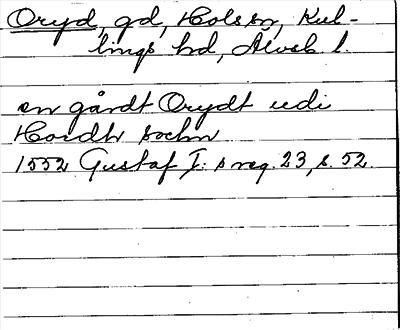 Oryd, gd, Hols sn, Kul-
lings hd, Älvsb l.
en gårdt Orydt udi
Hoedh sochn
1552 Gustaf I:s reg. 23, s. 52.